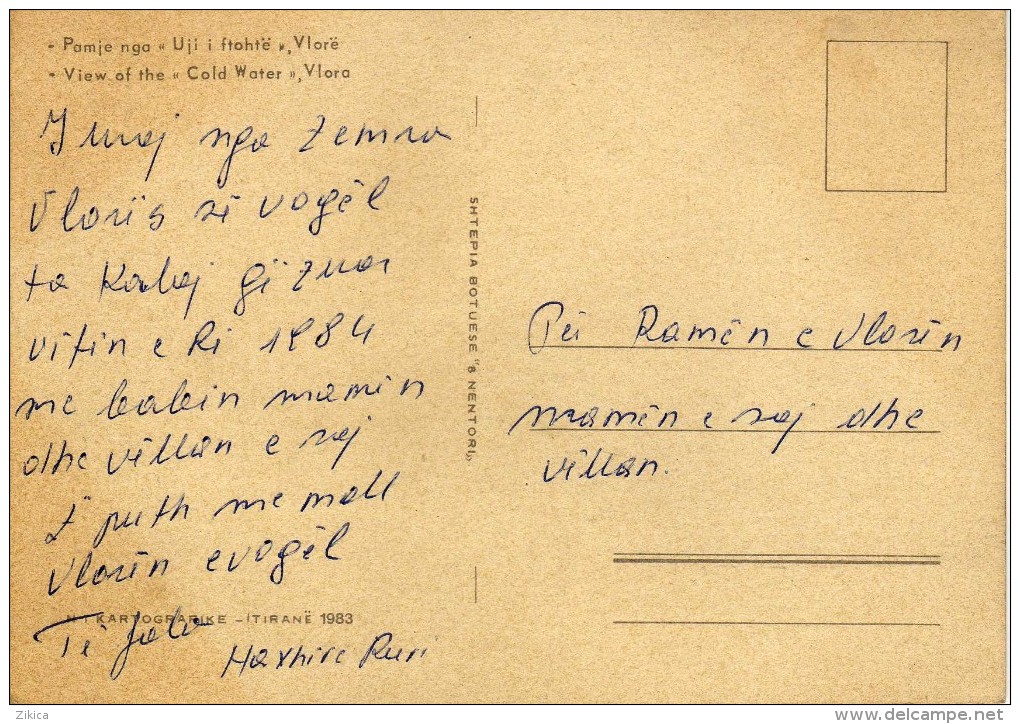 - Pamje nga « Uji i ftohtë », Vlorë
- View of the « Cold Water », Vlora
I uroj nga zemra
Vlorës së vogël
ta kaloj gëzuar
vitin e Ri 1984
me babin mamin
dhe vëllan e saj
I puth me mall
Vlorën e vogël
KARTOGRAFIKE - TIRANË 1983
Haxhire Ruri
SHTEPIA BOTUESE "8 NENTORI"
Për Ramën e Vlorën
mamën e saj dhe
vëllan.
Zikica
www.delcampe.net